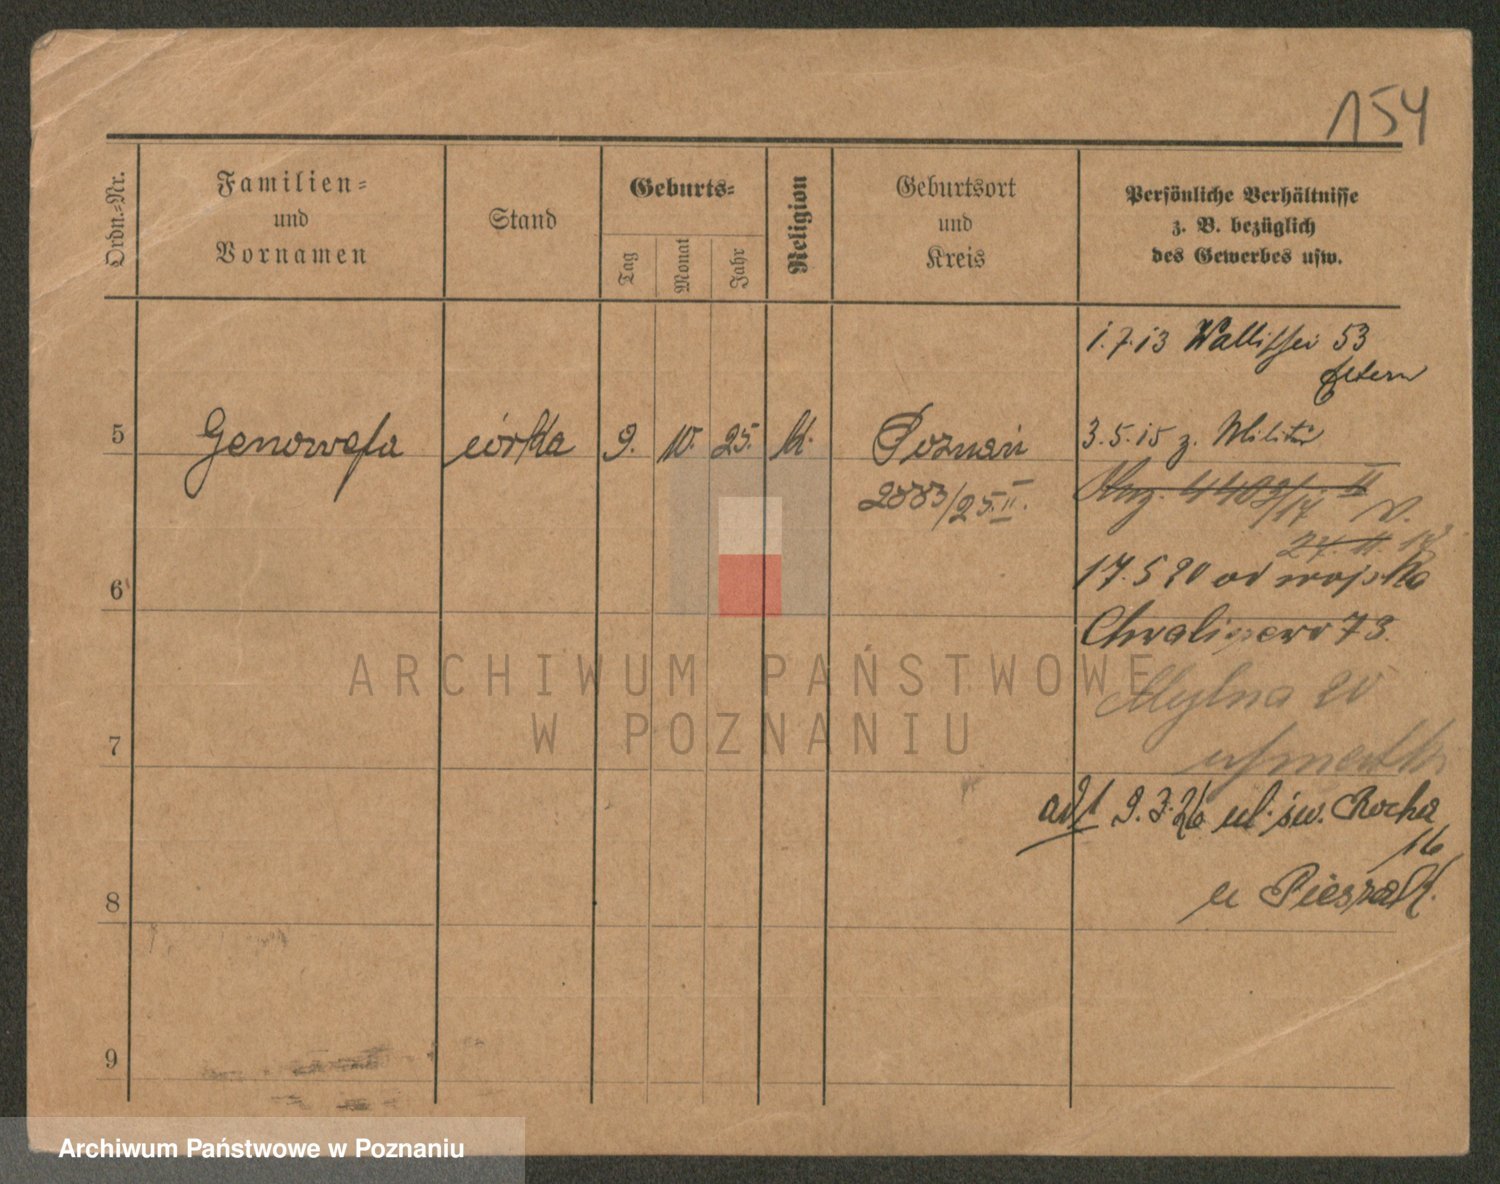 154
Ordn.-Nr.
Familien-
und
Vornamen
Stand
Geburts-
Tag
Monat
Jahr
Religion
Geburtsort
und
Kreis
Persönliche Verhältnisse
z. B. bezüglich
des Gewerbes usw.
1.7.13 Wallischei 53
Eltern
5 Genowefa córka 9. 10. 25. kt. Poznań 3.5.15 z. Militär
2883/25.II.
17
6 17.5 20 od wojska
Chwaliszewo 73.
Mylna 20
7
ad 1 9.3.26 ul. św. Rocha
16
8 u Pieszak.
9
ARCHIWUM PAŃSTWOWE
W POZNANIU
Archiwum Państwowe w Poznaniu